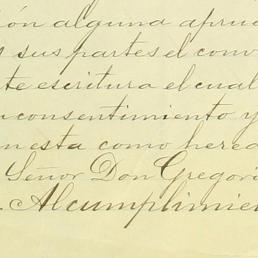 ión alguna aprue
s sus partes el conv
te escritura el cual
consentimiento y
n esta como hered
Señor Don Gregori
. Al cumplimien